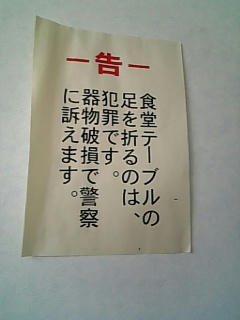 －告－
食堂テーブルの
足を折るのは、
犯罪です。
器物破損で警察
に訴えます。